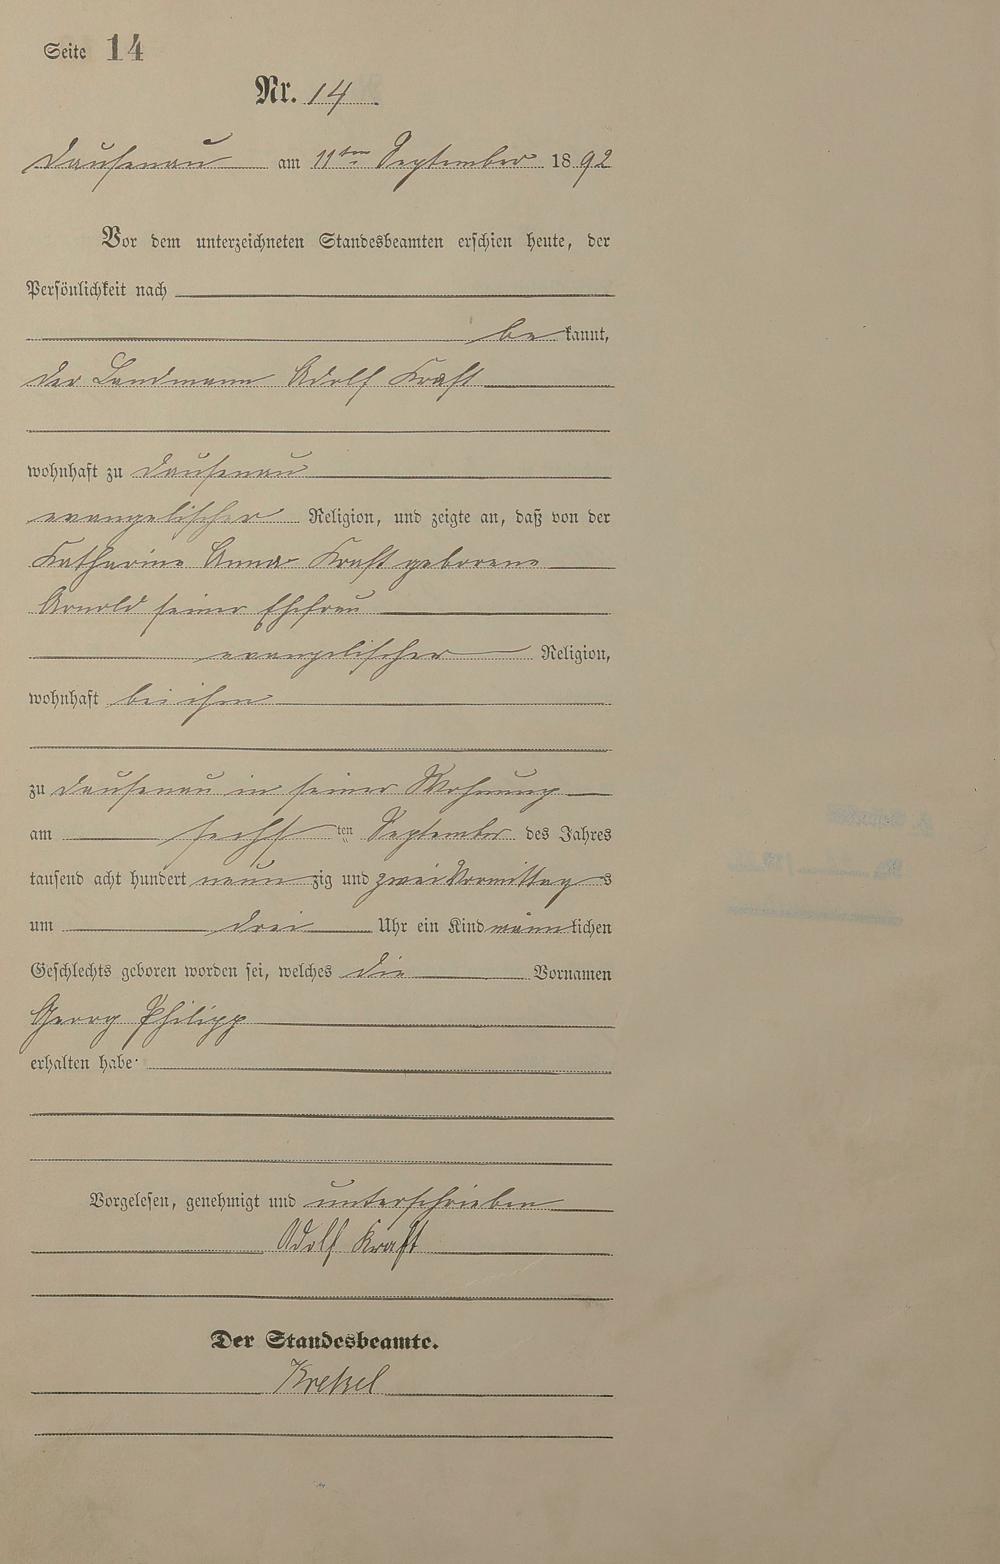 Seite 14
Nr. 14
Dausenau am 11ten September 1892
Vor dem unterzeichneten Standesbeamten erschien heute, der
Persönlichkeit nach
bekannt,
der Landmann Adolf Kraft
wohnhaft zu Dausenau
evangelischer Religion, und zeigte an, daß von der
Katharine Anna Kraft geborene
Arnold seiner Ehefrau
evangelischer Religion,
wohnhaft bei ihm
zu Dausenau in seiner Wohnung
am sechsten September des Jahres
tausend acht hundert neunzig und zwei Vormittags
um drei Uhr ein Kind männlichen
Geschlechts geboren worden sei, welches die Vornamen
Georg Philipp
erhalten habe
Vorgelesen, genehmigt und unterschrieben
Adolf Kraft
Der Standesbeamte.
Krekel